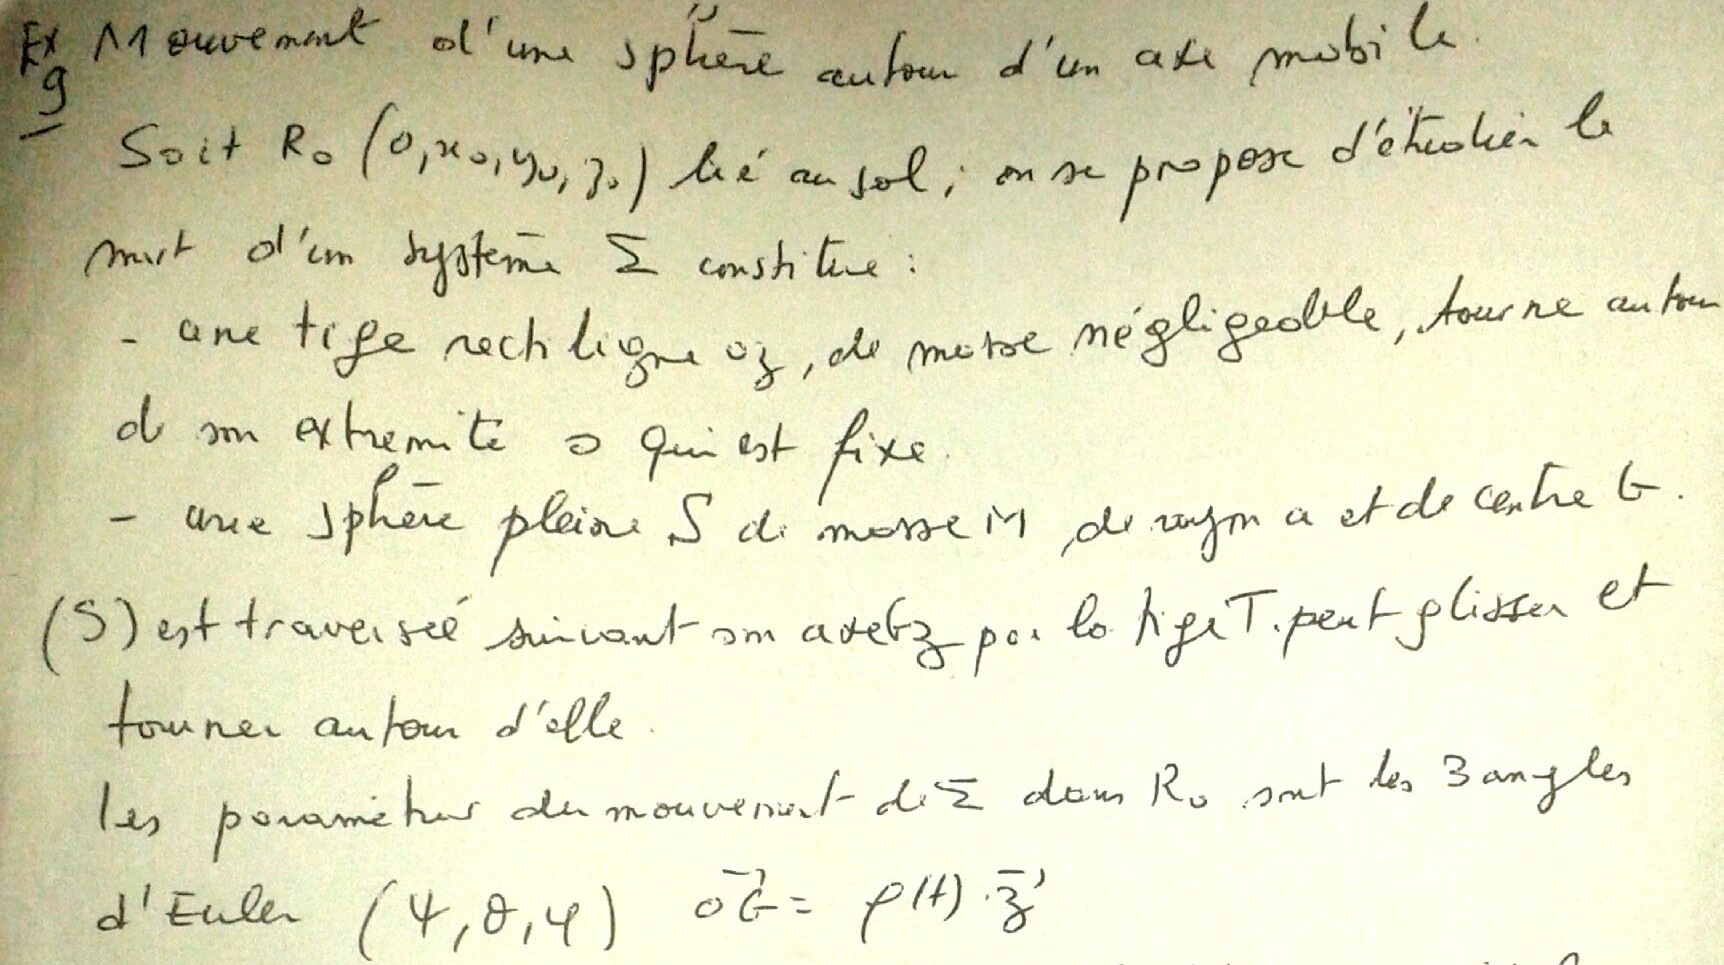 Ex 9 Mouvement d'une sphère autour d'un axe mobile.
Soit R₀ (0, x₀, y₀, z₀) lié au sol, on se propose d'étudier le
mvt d'un système Σ constitue :
- une tige rectiligne oz, de masse négligeable, tourne autour
de son extremité o qui est fixe.
- une sphère pleine S de masse M, de rayon a et de centre G.
(S) est traversée suivant son axe Gz par la tige T. peut glisser et
tourner autour d'elle.
les paramètres du mouvement de Σ dans R₀ sont les 3 angles
d'Euler (Ψ, θ, φ) \vec{OG} = ρ(t) . \vec{z}